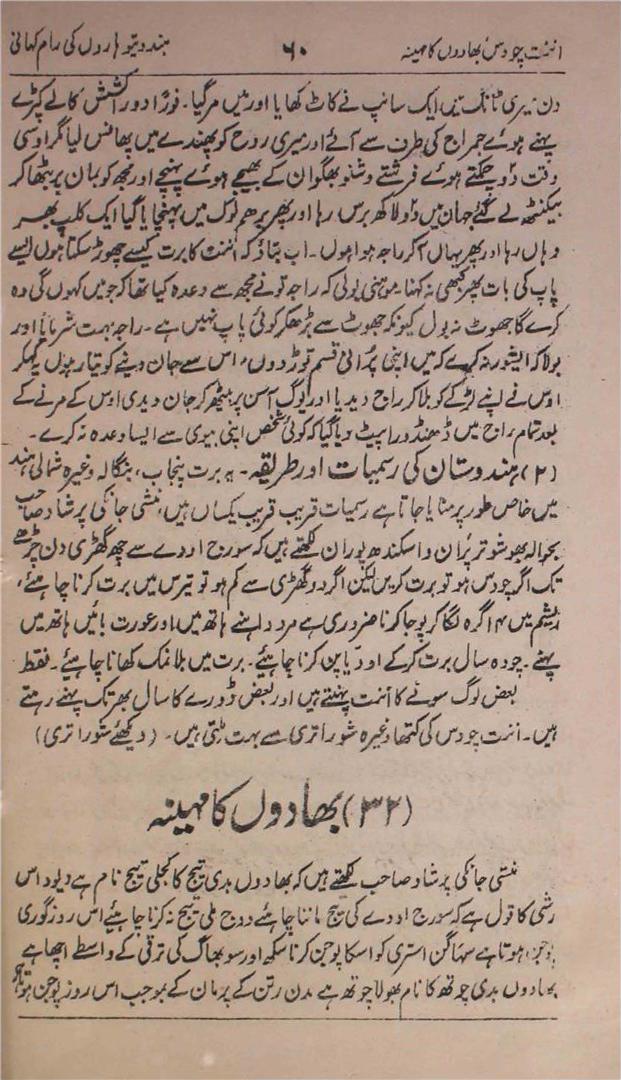 اننت چودس بھادوں کا مہینہ ۶۰ ہندو تیوہاروں کی رام کہانی
دن میری ٹانگ میں ایک سانپ نے کاٹ کھایا اور میں مر گیا۔ فوراً دو راکشش کالے کپڑے
پہنے ہوئے جمراج کی طرف سے آئے اور میری روح کو پھندے میں پھانس لیا مگر اوسی
وقت دو چمکتے ہوئے فرشتے وشنو بھگوان کے بھیجے ہوئے پہنچے اور مجھ کو بمان پر بٹھا کر
بیکنٹھ لے گئے جہان میں دو لاکھ برس رہا اور پھر برھم لوک میں پہنچایا گیا ایک کلپ بھر
وہاں رہا اور پھر یہاں آکر راجہ ہوا ہوں۔ اب بتاؤ کہ اننت کا برت کیسے چھوڑ سکتا ہوں ایسے
پاپ کی بات پھر کبھی نہ کہنا۔ موہنی بولی کہ راجہ تو نے مجھ سے وعدہ کیا تھا کہ جو میں کہوں گی وہ
کرے گا جھوٹ نہ بول کیونکہ جھوٹ سے بڑھکر کوئی پاپ نہیں ہے۔ راجہ بہت شرمایا اور
بولا کہ ایشور نہ کرے کہ میں اپنی پرانی قسم توڑ دوں، اس سے جان دینے کو تیار ہوں یہ کہکر
اوس نے اپنے لڑکے کو بلا کر راج دیدیا اور یوگ آسن پر بیٹھ کر جان دیدی اوس کے مرنے کے
بعد تمام راج میں ڈھنڈورا پیٹ دیا گیا کہ کوئی شخص اپنی بیوی سے ایسا وعدہ نہ کرے۔
(۲) ہندوستان کی رسمیات اور طریقہ۔ یہ برت پنجاب، بنگالہ وغیرہ شمالی ہند
میں خاص طور پر منایا جاتا ہے رسمیات قریب قریب یکساں ہیں، منشی جانکی پرشاد صاحب
بحوالہ بھوشوتر پران و اسکندھ پوران لکھتے ہیں کہ سورج اودے سے چھ گھڑی دن چڑھے
تک اگر چودس ہو تو برت کریں لیکن اگر دو گھڑی سے کم ہو تو تیرس میں برت کرنا چاہئے،
ریشم میں ۱۴ گرہ لگا کر پوجا کرنا ضروری ہے مرد داہنے ہاتھ میں اور عورت بائیں ہاتھ میں
پہنے۔ چودہ سال برت کرکے اودیاپن کرنا چاہئیے۔ برت میں بلا نمک کھانا چاہئیے۔ فقط
بعض لوگ سونے کا اننت پہنتے ہیں اور بعض ڈورے کا سال بھر تک پہنے رہتے
ہیں۔ اننت چودس کی کتھا وغیرہ شوراتری سے بہت ملتی ہیں۔ (دیکھئے شوراتری)
(۳۲) بھادوں کا مہینہ
منشی جانکی پرشاد صاحب لکھتے ہیں کہ بھادوں بدی تیج کا کجلی تیج نام ہے دیوداس
رشی کا قول ہے کہ سورج اودے کی تیج ماننا چاہئے دوج ملی تیج نہ کرنا چاہئیے اس روز گوری
پوجن ہوتا ہے سہاگن استری کو اسکا پوجن کرنا سکھ اور سوبھاگ کی ترقی کے واسطے اچھا ہے
بھادوں بدی چوتھ کا نام بھولا چوتھ ہے مدن رتن کے پرمان کے بموجب اس روز پوجن ہوتا ہے